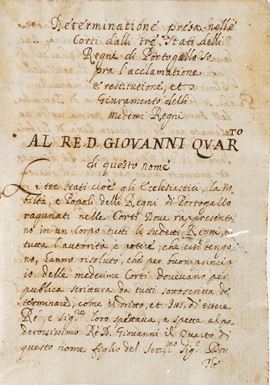 Determinatione presa nelle
Corti dalli tre Stati delli
Regni di Portogallo so
pra l'acclamatione
e restitutione, et
Giuramento delli
medemi Regni
AL RE D. GIOVANNI QUAR TO
di questo nome
Li tre stati cioè gli Ecclesiastici, la No
biltà, e Popoli delli Regni di Portogallo
ragunati nelle Corti Dove rappresenta
no in un corpo tutti li sudetti Regni, e
tutta l'autorità, e potere, che essi tengo
no, hanno risoluto, che per buon principio
delle medesime Corti dovevano per
publica scrittura da tutti sottoscritta de
terminare, come il dritto, et Jus, di essere
Rè, e Sig.re loro spettava, e spetta al po
derosissimo Re D. Giovanni il Quarto di
questo nome figlio del Ser.mo Sig. Don